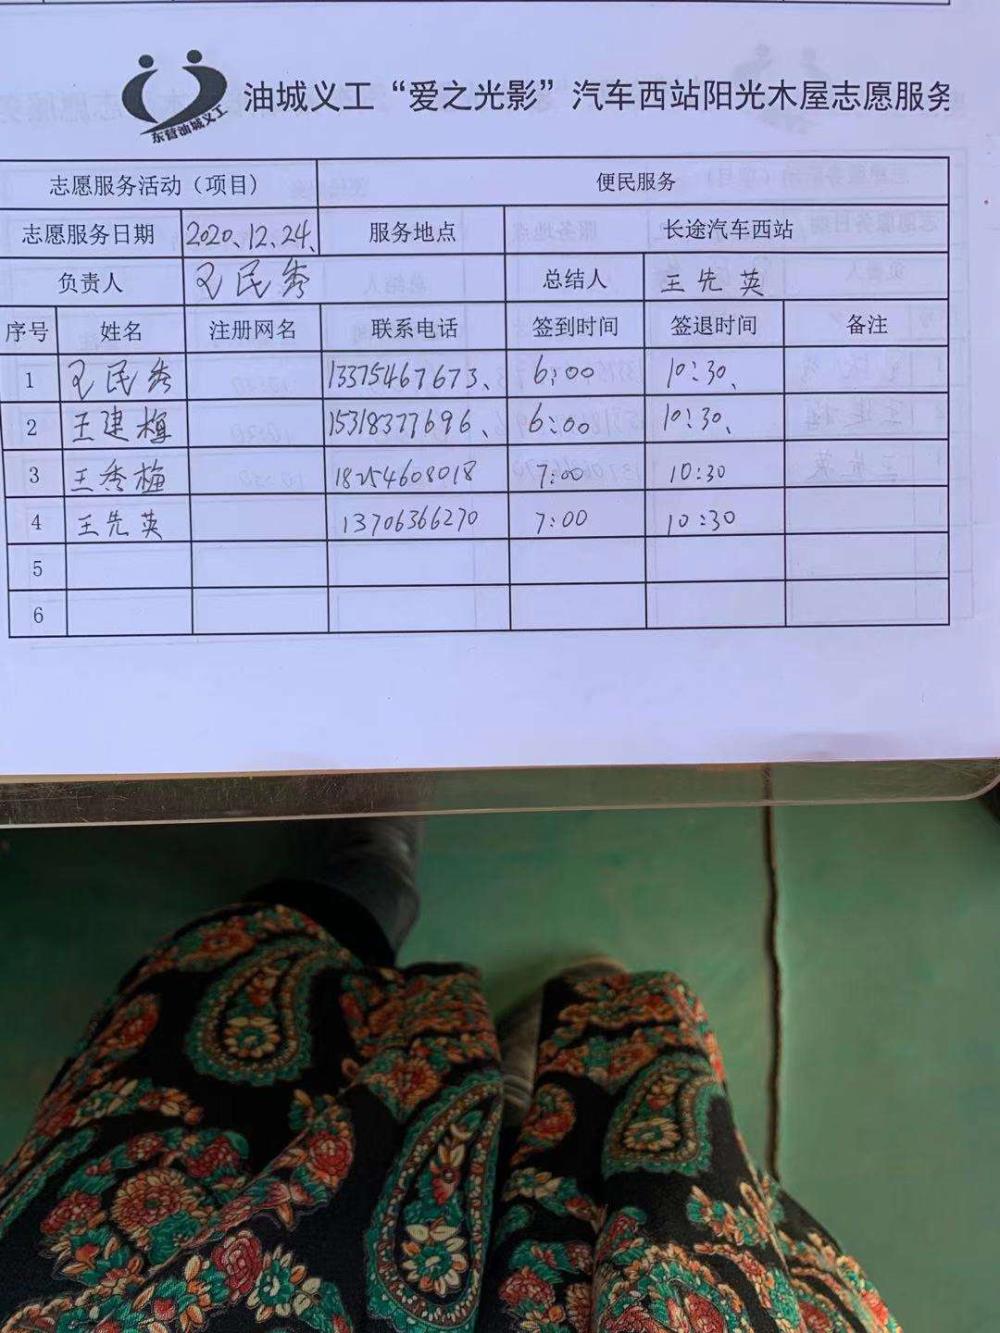 油城义工“爱之光影”汽车西站阳光木屋志愿服务
东营油城义工
志愿服务活动（项目） 便民服务
志愿服务日期 2020、12、24、 服务地点 长途汽车西站
负责人 王民秀 总结人 王先英
序号 姓名 注册网名 联系电话 签到时间 签退时间 备注
1 王民秀 13375467673、 6:00 10:30、
2 王建梅 15318377696、 6:00 10:30、
3 王秀梅 18254608018 7:00 10:30
4 王先英 13706366270 7:00 10:30
5
6